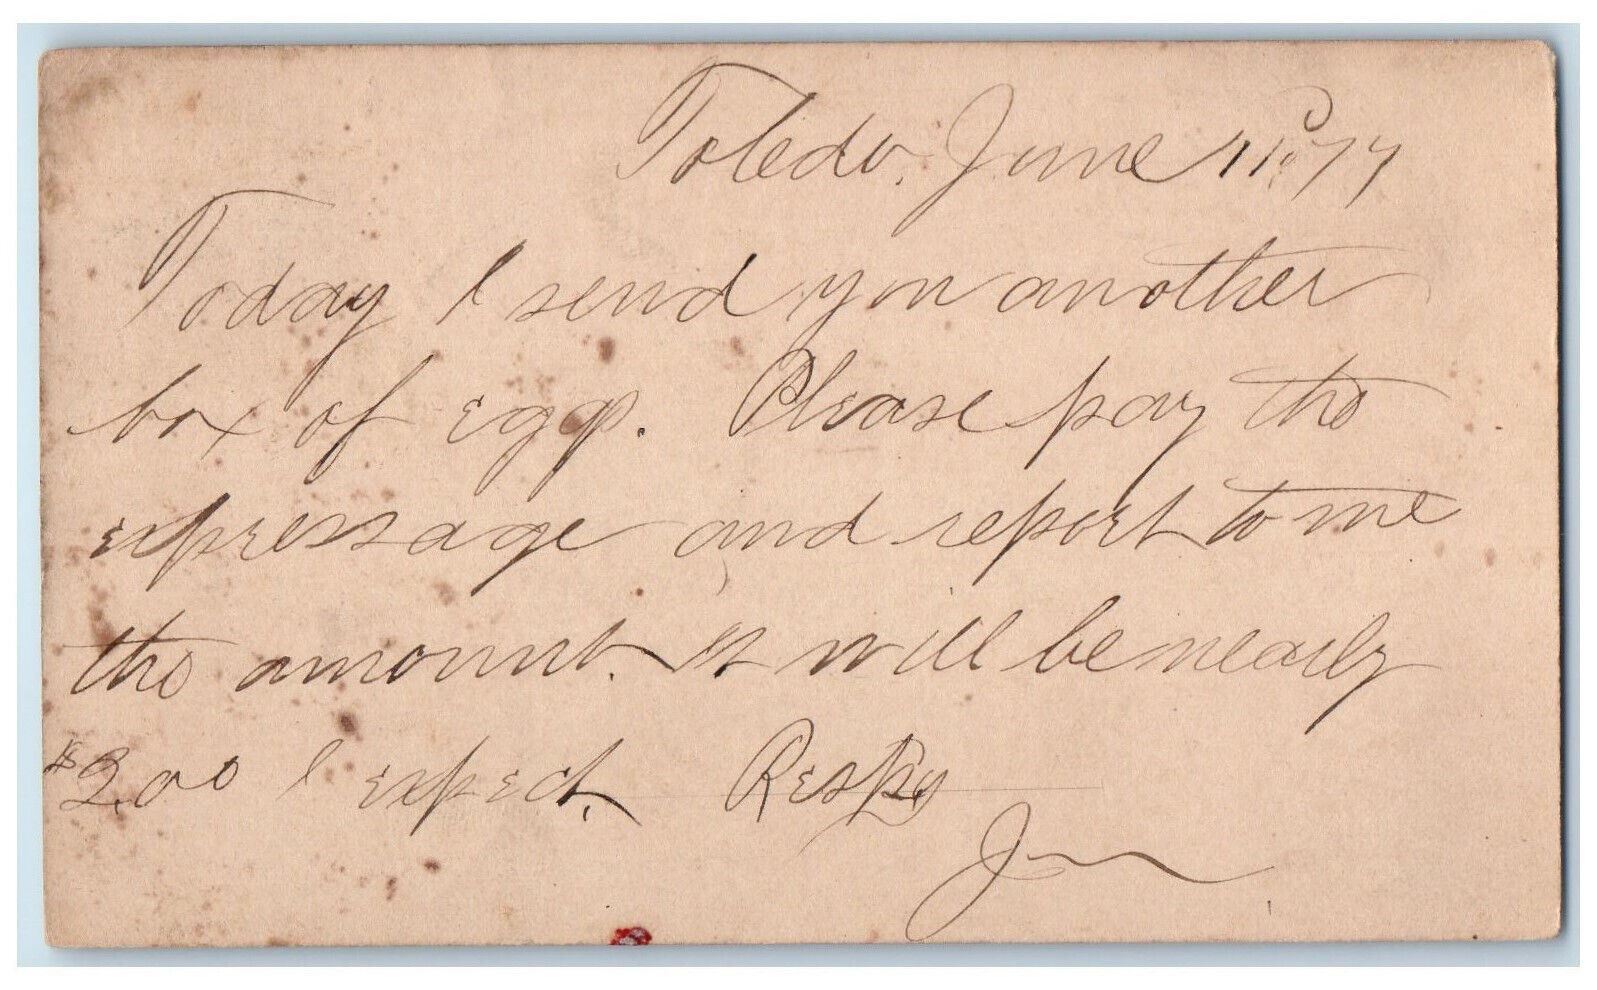 Toledo. June 11th 77
Today I send you another
box of eggs. Please pay the
expressage and report to me
the amount. It will be nearly
$2.00 I expect. Respy